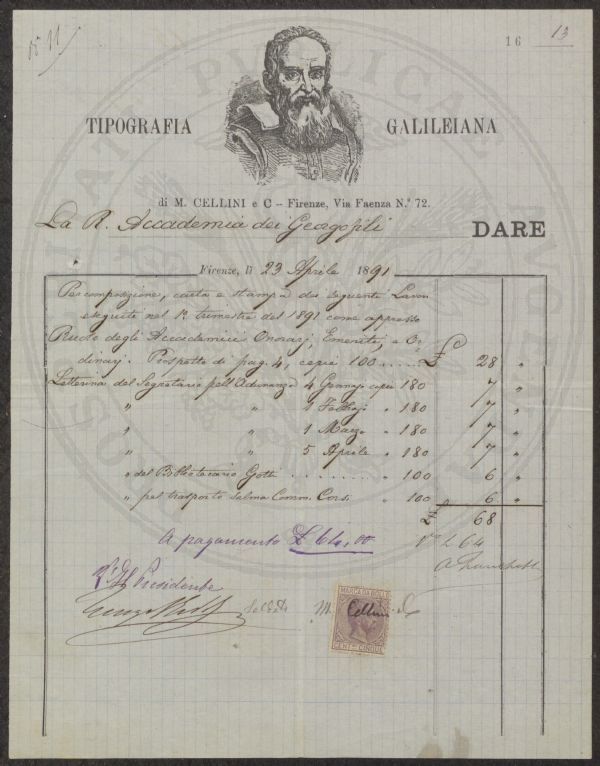 16 13
TIPOGRAFIA GALILEIANA
di M. CELLINI e C – Firenze, Via Faenza N.° 72.
La R. Accademia dei Georgofili DARE
Firenze, lì 23 Aprile 1891
Per composizione, carta e stampa dei seguenti Lavori
eseguiti nel 1° trimestre del 1891 come appresso
Ruolo degli Accademici Onorarj, Emeriti, e Or
dinarj. Prospetto di pag. 4, copie 100 ...... £ 28 "
Letterina del Segretario pell'Adunanza 4 Gennajo copie 180 7 "
" " 1 Febbajo " 180 7 "
" " 1 Marzo " 180 7 "
" " 5 Aprile " 180 7 "
" del Bibliotecario Gotti ........ " 100 6 "
" pel trasporto salma Comm. Corsi " 100 6 "
68
A pagamento £ 64,00 £ 64
Il Presidente
Saldato M. Cellini e C
MARCA DA BOLLO
CENT.MI CINQUE